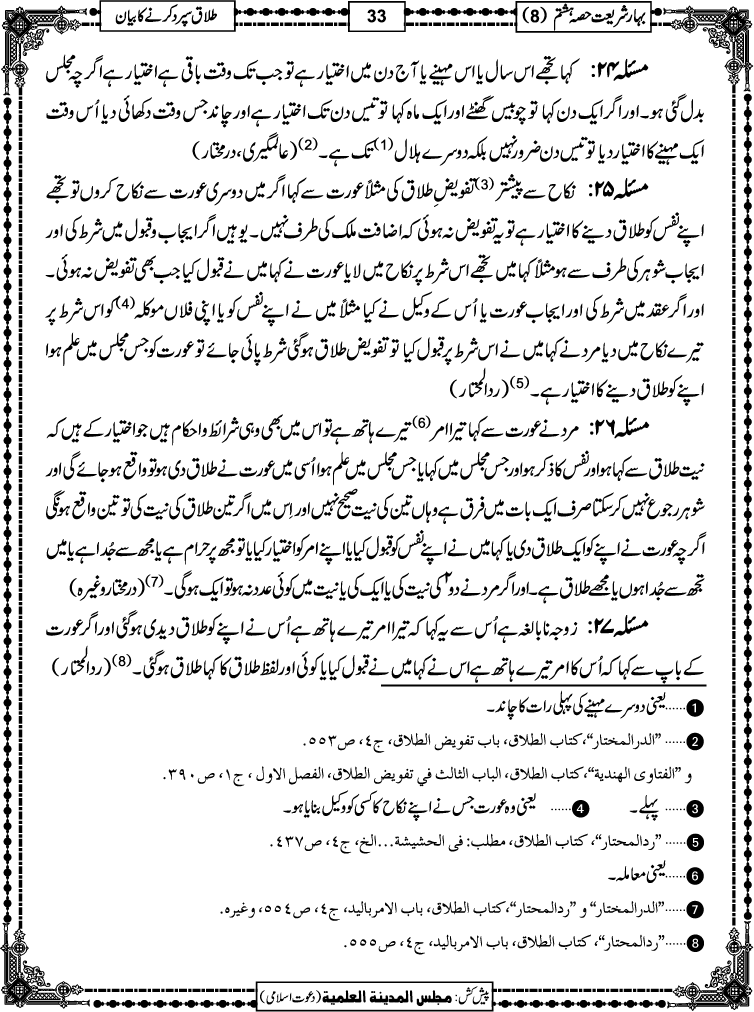 بہارِ شریعت حصہ ہشتم (8)
33
طلاق سپرد کرنے کا بیان
مسئلہ ۲۴: کہا تجھے اس سال یا اس مہینے یا آج دن میں اختیار ہے تو جب تک وقت باقی ہے اختیار ہے اگرچہ مجلس
بدل گئی ہو۔ اور اگر ایک دن کہا تو چوبیس گھنٹے اور ایک ماہ کہا تو تیس دن تک اختیار ہے اور چاند جس وقت دکھائی دیا اُس وقت
ایک مہینے کا اختیار دیا تو تیس دن ضرور نہیں بلکہ دوسرے ہلال (1) تک ہے۔ (2) (عالمگیری، درمختار)
مسئلہ ۲۵: نکاح سے پیشتر (3) تفویضِ طلاق کی مثلاً عورت سے کہا اگر میں دوسری عورت سے نکاح کروں تو تجھے
اپنے نفس کو طلاق دینے کا اختیار ہے تو یہ تفویض نہ ہوئی کہ اضافت ملک کی طرف نہیں۔ یوہیں اگر ایجاب و قبول میں شرط کی اور
ایجاب شوہر کی طرف سے ہو مثلاً کہا میں تجھے اس شرط پر نکاح میں لایا عورت نے کہا میں نے قبول کیا جب بھی تفویض نہ ہوئی۔
اور اگر عقد میں شرط کی اور ایجاب عورت یا اُس کے وکیل نے کیا مثلاً میں نے اپنے نفس کو یا اپنی فلاں موکلہ (4) کو اس شرط پر
تیرے نکاح میں دیا مرد نے کہا میں نے اس شرط پر قبول کیا تو تفویض طلاق ہوگئی شرط پائی جائے تو عورت کو جس مجلس میں علم ہوا
اپنے کو طلاق دینے کا اختیار ہے۔ (5) (ردالمحتار)
مسئلہ ۲۶: مرد نے عورت سے کہا تیرا امر (6) تیرے ہاتھ ہے تو اس میں بھی وہی شرائط و احکام ہیں جو اختیار کے ہیں کہ
نیت طلاق سے کہا ہو اور نفس کا ذکر ہو اور جس مجلس میں کہا یا جس مجلس میں علم ہوا اُسی میں عورت نے طلاق دی ہو تو واقع ہو جائے گی اور
شوہر رجوع نہیں کر سکتا صرف ایک بات میں فرق ہے وہاں تین کی نیت صحیح نہیں اور اِس میں اگر تین طلاق کی نیت کی تو تین واقع ہونگی
اگرچہ عورت نے اپنے کو ایک طلاق دی یا کہا میں نے اپنے نفس کو قبول کیا یا اپنے امر کو اختیار کیا یا تو مجھ پر حرام ہے یا مجھ سے جُدا ہے یا میں
تجھ سے جُدا ہوں یا مجھے طلاق ہے۔ اور اگر مرد نے دو۲ کی نیت کی یا ایک کی یا نیت میں کوئی عدد نہ ہو تو ایک ہوگی۔ (7) (درمختار وغیرہ)
مسئلہ ۲۷: زوجہ نابالغہ ہے اُس سے یہ کہا کہ تیرا امر تیرے ہاتھ ہے اُس نے اپنے کو طلاق دیدی ہوگئی اور اگر عورت
کے باپ سے کہا کہ اُس کا امر تیرے ہاتھ ہے اس نے کہا میں نے قبول کیا یا کوئی اور لفظ طلاق کا کہا طلاق ہوگئی۔ (8) (ردالمحتار)
1 ......یعنی دوسرے مہینے کی پہلی رات کا چاند۔
2 ...... "الدرالمختار"، کتاب الطلاق، باب تفویض الطلاق، ج٤، ص٥٥٣.
و "الفتاوی الھندیة"، کتاب الطلاق، الباب الثالث في تفویض الطلاق، الفصل الاول، ج١، ص٣٩٠.
3 ...... پہلے۔ 4 ...... یعنی وہ عورت جس نے اپنے نکاح کا کسی کو وکیل بنایا ہو۔
5 ...... "ردالمحتار"، کتاب الطلاق، مطلب: فی الحشیشة...الخ، ج٤، ص٤٣٧.
6 ......یعنی معاملہ۔
7 ......"الدرالمختار" و "ردالمحتار"، کتاب الطلاق، باب الامر بالید، ج٤، ص٥٥٤، وغیرہ.
8 ......"ردالمحتار"، کتاب الطلاق، باب الامر بالید، ج٤، ص٥٥٥.
پیش کش: مجلس المدینة العلمیة (دعوت اسلامی)